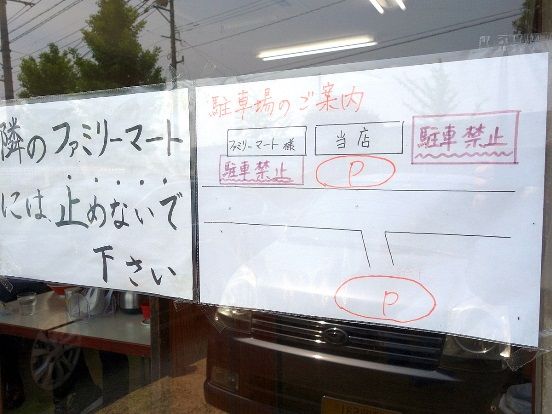 隣のファミリーマート
には、止めないで
下さい
駐車場のご案内
ファミリーマート様
当店
駐車禁止
駐車禁止
P
P